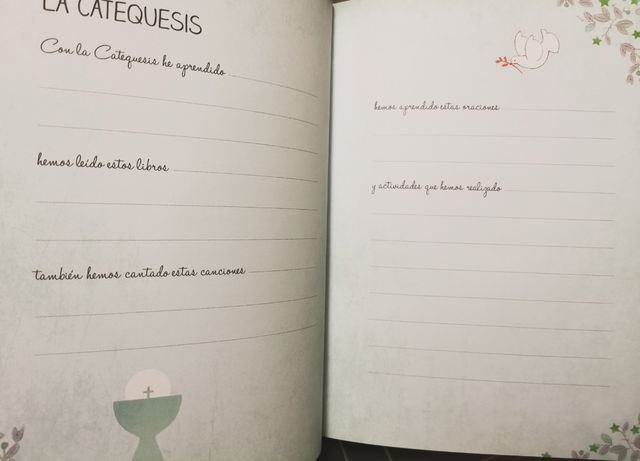 LA CATEQUESIS
Con la Catequesis he aprendido
hemos leído estos libros
también hemos cantado estas canciones
hemos aprendido estas oraciones
y actividades que hemos realizado